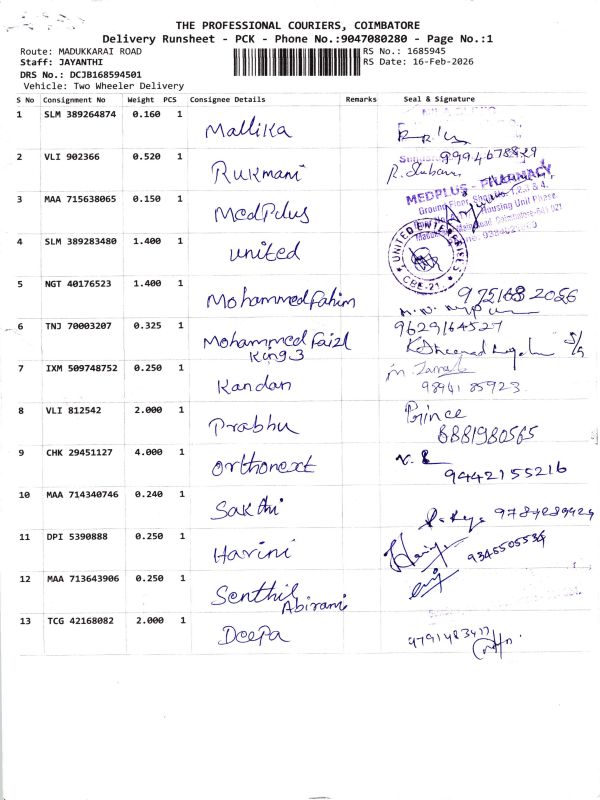 THE PROFESSIONAL COURIERS, COIMBATORE
Delivery Runsheet - PCK - Phone No.:9047080280 - Page No.:1
Route: MADUKKARAI ROAD RS No.: 1685945
Staff: JAYANTHI RS Date: 16-Feb-2026
DRS No.: DCJB168594501
Vehicle: Two Wheeler Delivery
S No Consignment No Weight PCS Consignee Details Remarks Seal & Signature
1 SLM 389264874 0.160 1 Mallika
2 VLI 902366 0.520 1 Rukmani 9994678829
3 MAA 715638065 0.150 1 MedPlus MEDPLUS - PHARMACY
4 SLM 389283480 1.400 1 united UNITED ENTERPRISES CBE-21
5 NGT 40176523 1.400 1 Mohammed fahim
6 TNJ 70003207 0.325 1 Mohammed Faizl 9629164527
King 3
7 IXM 509748752 0.250 1 Kandan
8 VLI 812542 2.000 1 Prabhu Prince
8881980565
9 CHK 29451127 4.000 1 orthonext
9442155216
10 MAA 714340746 0.240 1 Sakthi
11 DPI 5390888 0.250 1 Harini 9345505534
12 MAA 713643906 0.250 1 Senthil
Abirami
13 TCG 42168082 2.000 1 Deepa